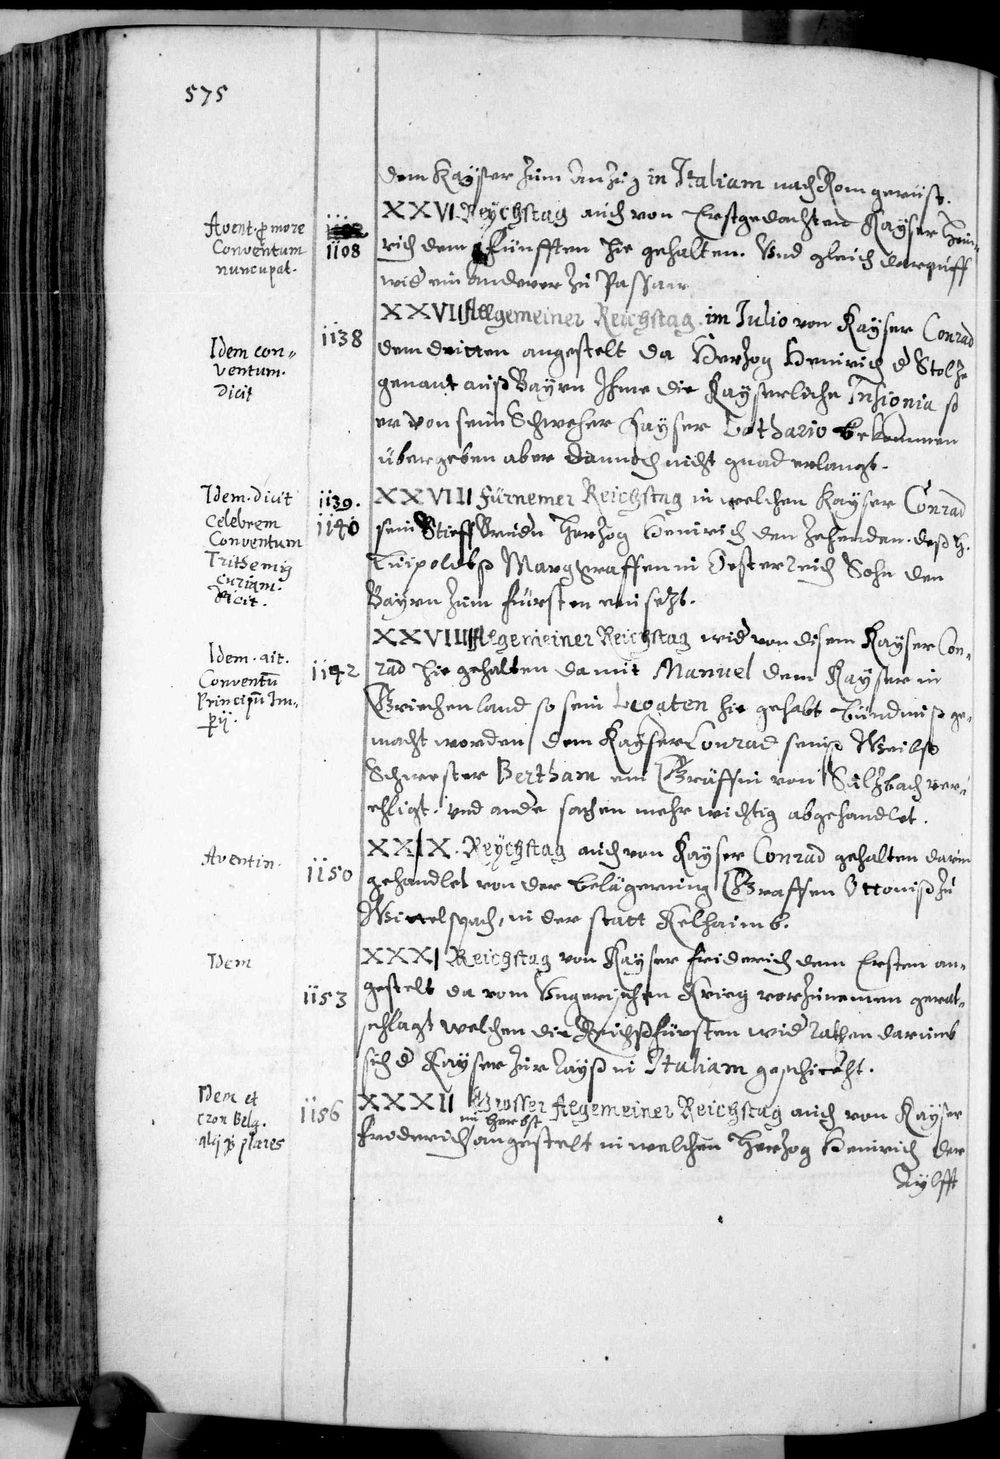 575
dem Kaÿser zum Anzug in Italiam nach Rom gerüst.
Avent. p more
Conventum
nuncupat.
1108
XXVI. Reÿchstag auch von Erstgedachten Kaÿser Hein-
rich dem Fünfften hie gehalten. Vnd gleich darauff
wid ein anderer zu Passaw
Idem con-
ventum.
dicit
1138
XXVII Allgemeiner Reichstag. im Julio von Kaÿser Conrad
dem dritten angestelt da Herzog Heinrich d Stolze
genant auß Baÿrn Ihme die Kaÿserliche Insignia so
er von seim Schweher Kayser Lothario bekommen
übergeben aber dannoch nicht gnad erlangt.
Idem. dicit
Celebrem
Conventum
Trithemij
curiam.
dicit.
1139.
1140
XXVIII Fürnemer Reichstag in welchen Kayser Conrad
sein Stieff Brudn Herzog Heinrich den Zehenden. deß H.
Luipoldß Marggraffen in Oesterreich Sohn den
Bayrn zum Fürsten einsetzt.
Idem. ait.
Conventū
Principū Im-
pij.
1142
XXVIIII Algemeiner Reichstag wid von disem Kayser Con-
rad hie gehalten damit Manuel dem Kayser in
Griechenland so sein Legaten hie gehabt Bündniß ge-
macht worden / dem Kayser Conrad seins Weibs
Schwester Bertham ein Gräffin von Sulzbach ver-
ehligt. vnd ande sachen mehr wichtig abgehandlet.
Aventin.
1150
XXX. Reÿchstag auch von Kayser Conrad gehalten darin
gehandlet von der belägerung Graffen Ottoniß zu
Wittelspach, in der statt Kelhaimb.
Idem
1153
XXXI Reichstag von Kayser Friderich dem Ersten an-
gestelt da vom Vngerischen Krieg vorzunemen gerat-
schlagt welchen die Reichßfürsten wid rathen darumb
sich d Kayser zur rayß in Italiam geschickht.
Idem et
cron Belg.
alij q̃ plures
1156
XXXII Grosser Algemeiner Reichstag auch von Kayser
im herbst
Friderich angestelt in welchen Herzog Heinrich der
Aÿlfft